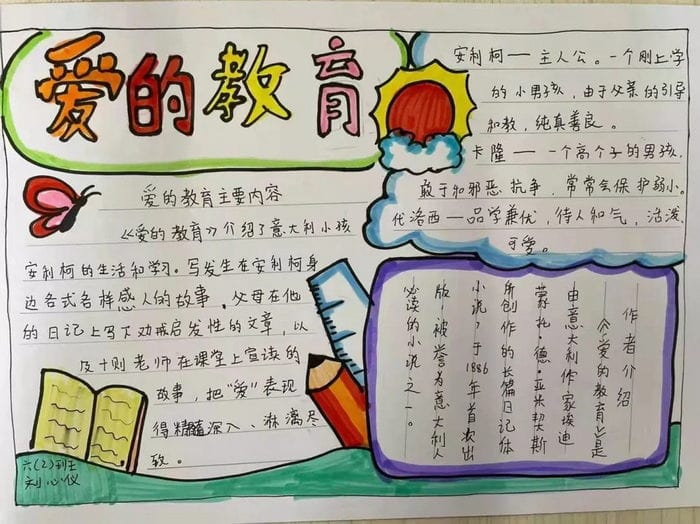 爱的教育
安利柯——主人公。一个刚上学
的小男孩，由于父亲的引导
和教，纯真善良。
卡隆——一个高个子的男孩，
敢于和邪恶抗争，常常会保护弱小。
代洛西——品学兼优，待人和气，活泼
可爱。
爱的教育主要内容
《爱的教育》介绍了意大利小孩
安利柯的生活和学习。写发生在安利柯身
边各式各样感人的故事。父母在他
的日记上写下劝戒启发性的文章，以
及十则老师在课堂上宣读的
故事，把“爱”表现
得精髓深入、淋漓尽
致。
作者介绍
《爱的教育》是
由意大利作家埃迪
蒙托·德·亚米契斯
所创作的长篇日记体
小说，于1886年首次出
版，被誉为意大利人
必读的小说之一。
六(2)班
刘心仪